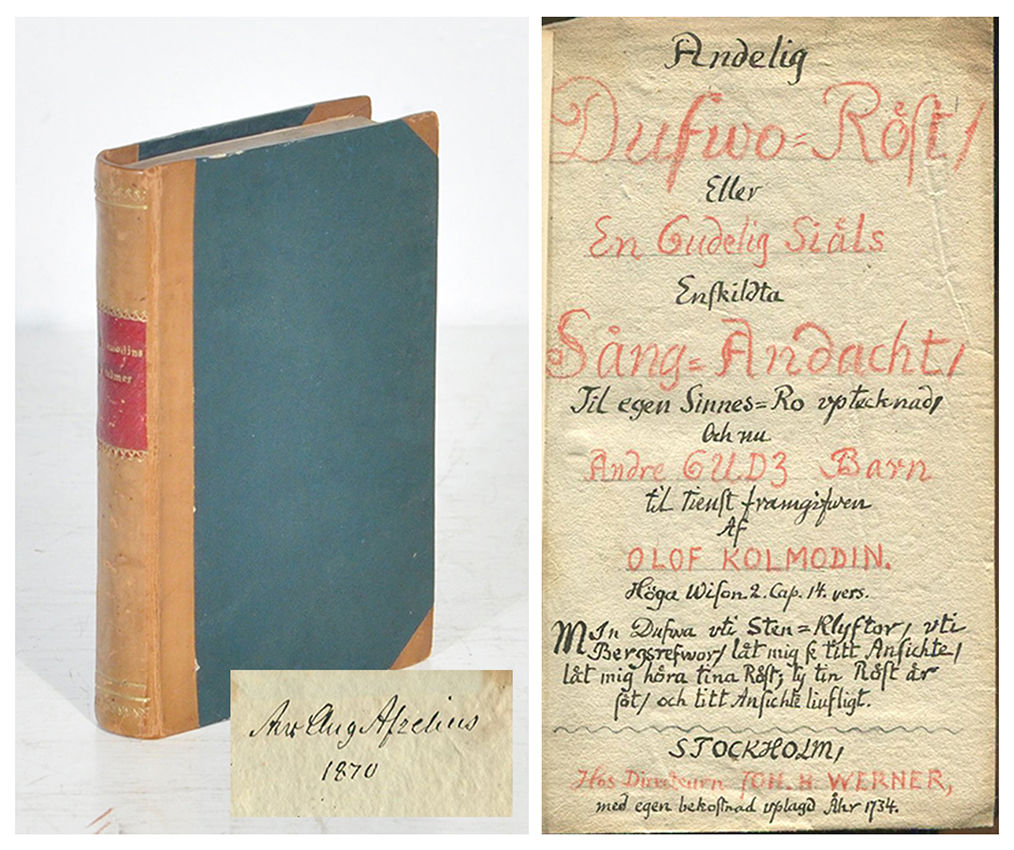 Arv Aug Afzelius
1870
Andelig
Dufwo=Röst/
Eller
En Gudelig Siåls
Enskildta
Sång=Andacht/
Til egen Sinnes=Ro vptecknad/
Och nu
Andre GUDZ Barn
til Tienst framgifwen
Af
OLOF KOLMODIN.
Höga Wison. 2. Cap. 14. vers.
MIn Dufwa vti Sten=Klyftor/ vti
Bergsrefwor/ låt mig se titt Ansichte/
låt mig höra tina Röst; ty tin Röst är
söt/ och titt Ansichte liufligt.
STOCKHOLM/
Hos Directeurn JOH. H. WERNER,
med egen bekostnad vplagd Åhr 1734.